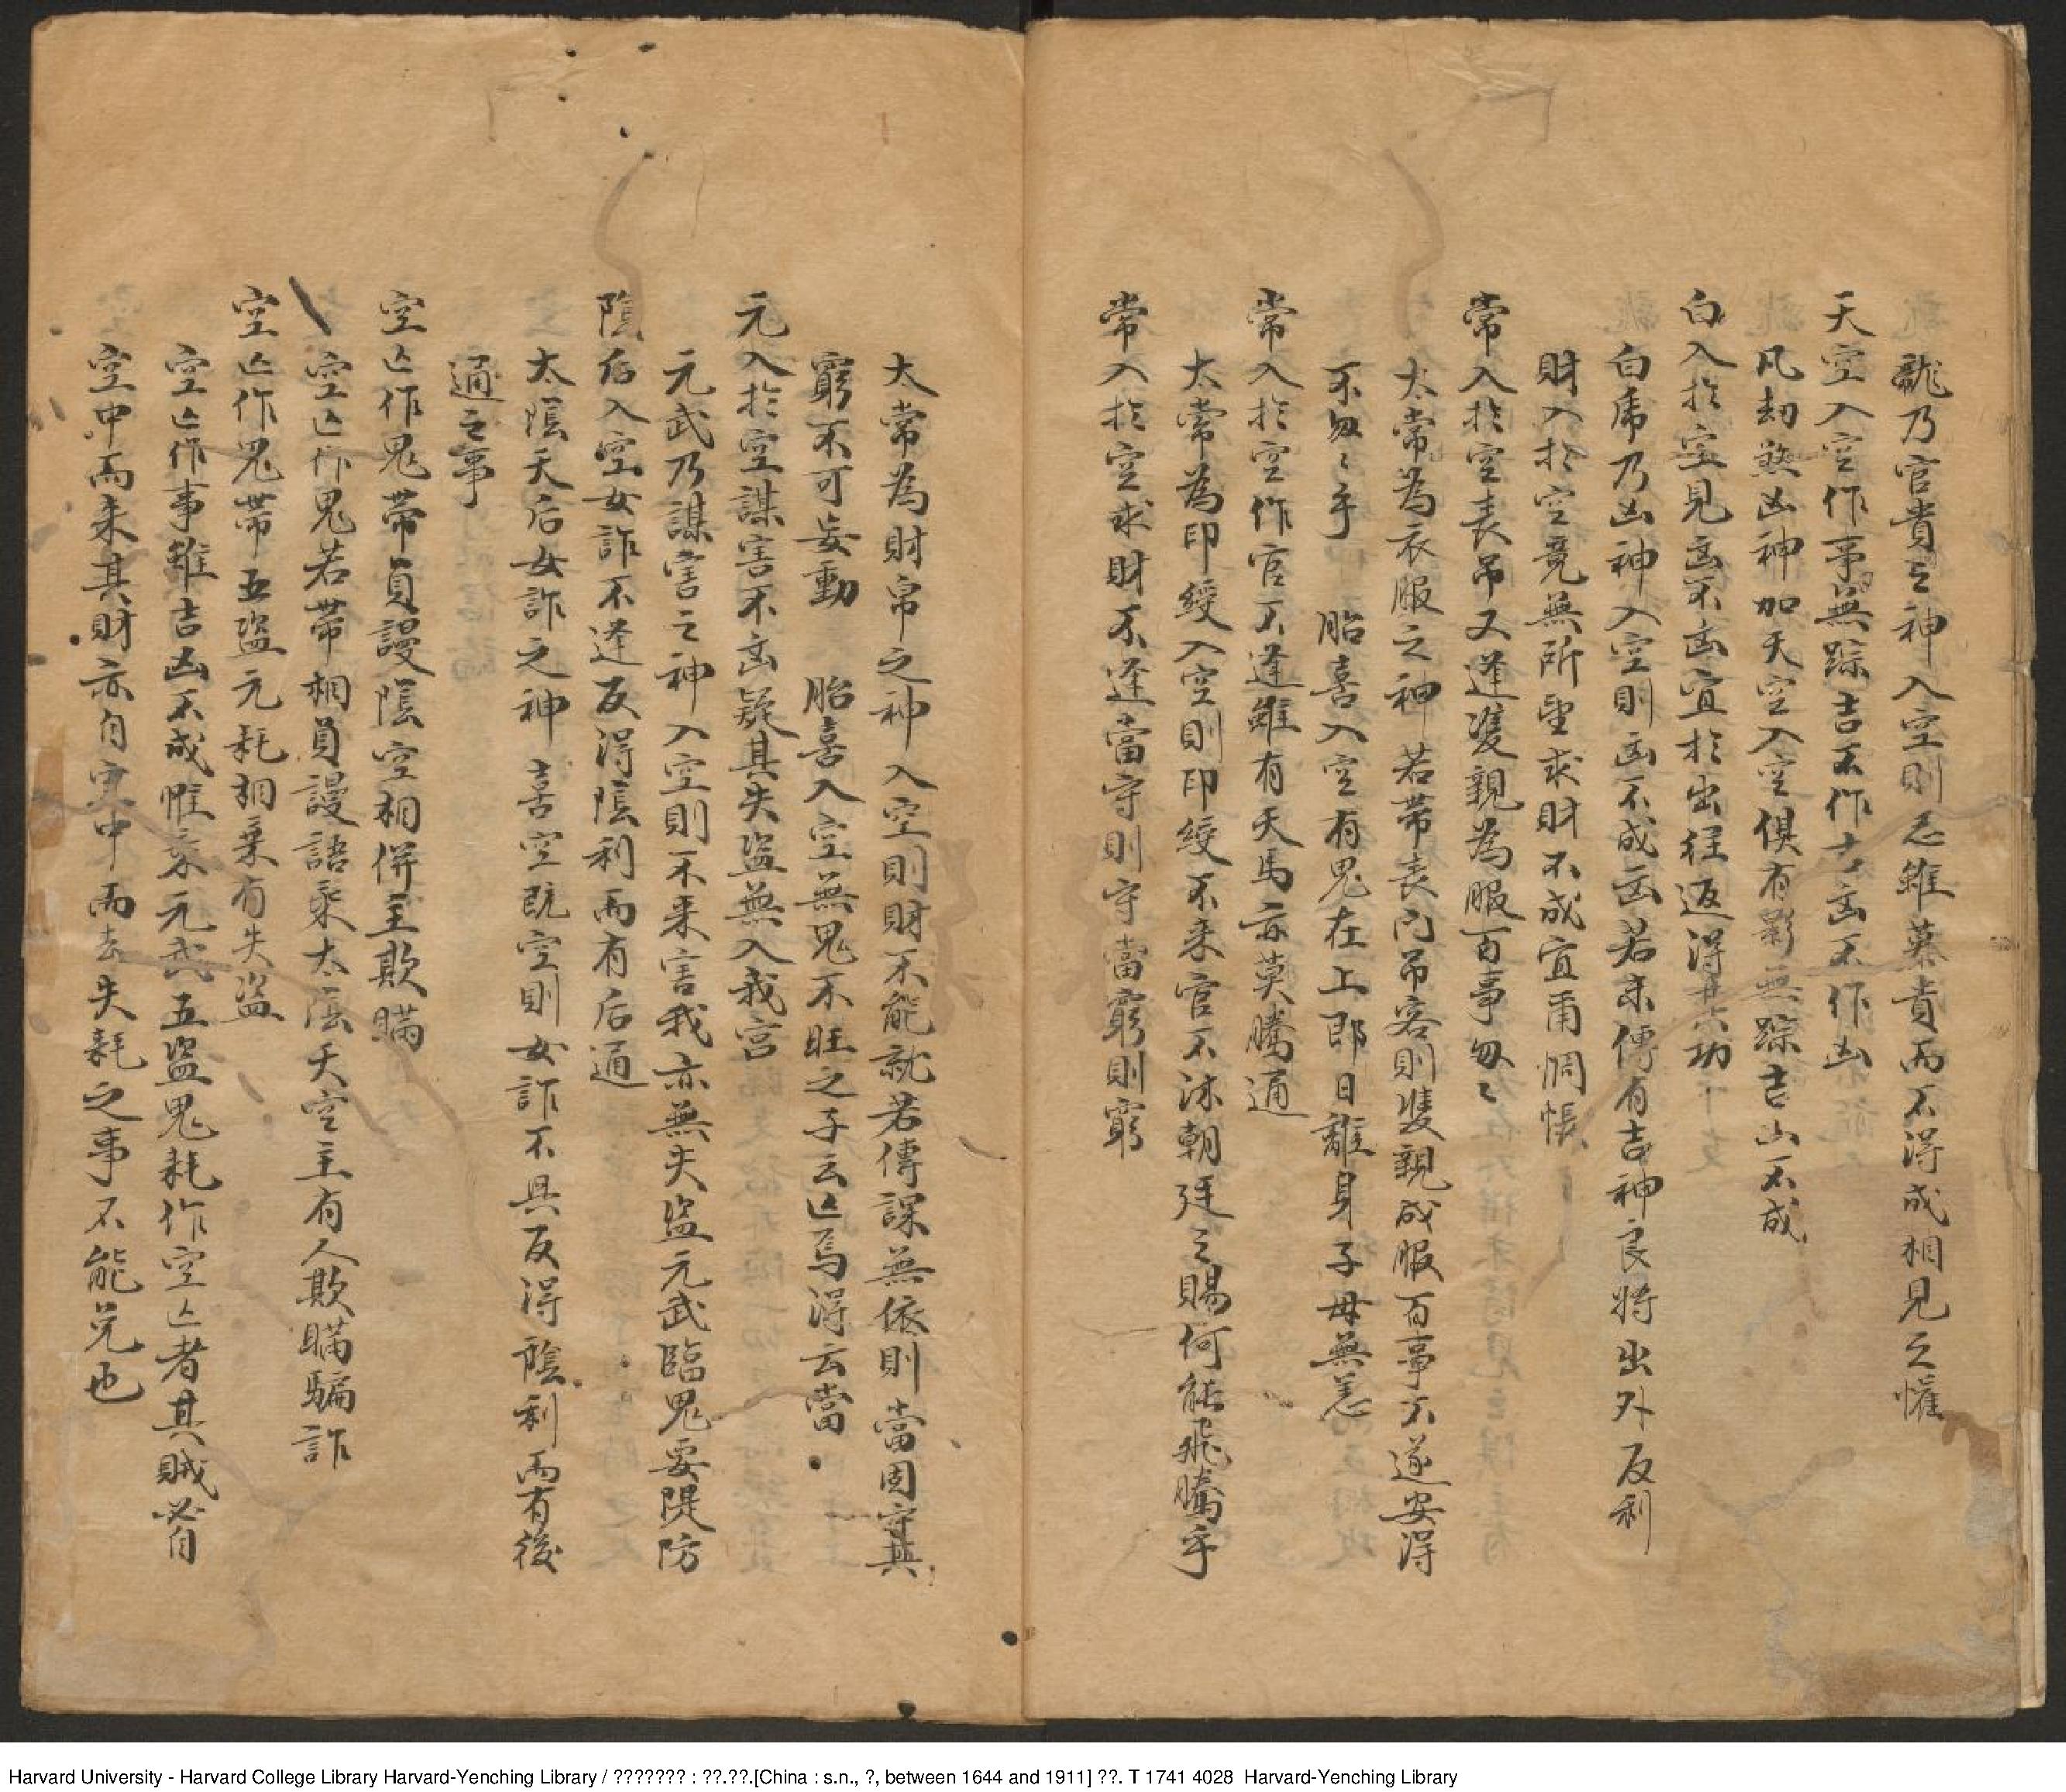 龍乃官貴之神入空則忌雖慕貴而不得成相見之懽
天空入空作事無踪吉不作吉凶不作凶
凡劫煞凶神加天空入空俱有影無踪吉凶不成
白入於空見凶不凶宜於出徃返得其功
白虎乃凶神入空則凶不成凶若末傳有吉神良將出外反利
財入於空竟無所望求財不成宜甭惆悵
常入於空丧吊又逢雙親為服百事匆〻
太常為衣服之神若带丧门吊客則雙親成服百事不遂安得
不匆〻乎 胎喜入空有鬼在上即日離身子母無恙
常入於空作官不逢雖有天馬亦莫騰通
太常為印綬入空則印綬不来官不沐朝廷之賜何能飛騰乎
常入於空求財不逢當守則守當窮則窮
太常為財帛之神入空則財不能就若傳課無依則當固守其
窮不可妄動 胎喜入空無鬼不旺之子云亾焉得云當
元入於空謀害不凶疑其失盗無入我宫
元武乃謀害之神入空則不来害我亦無失盗元武臨鬼要隄防
陰后入空女詐不逢反得陰利而有后通
太陰天后女詐之神 喜空既空則女詐不具反得陰利而有後
通之事
空亾作鬼带負謾陰空相併主欺瞞
空亾作鬼若带相負謾語乘太陰天空主有人欺瞞騙詐
空亾作鬼带五盗元耗相乘有失盗
空亾作事雖吉凶不成惟乘元武五盗鬼耗作空亾者其賊必自
空中而来其財亦自空中而去失耗之事不能免也
Harvard University - Harvard College Library Harvard-Yenching Library / ??????? : ??.??.[China : s.n., ?, between 1644 and 1911] ??. T 1741 4028 Harvard-Yenching Library